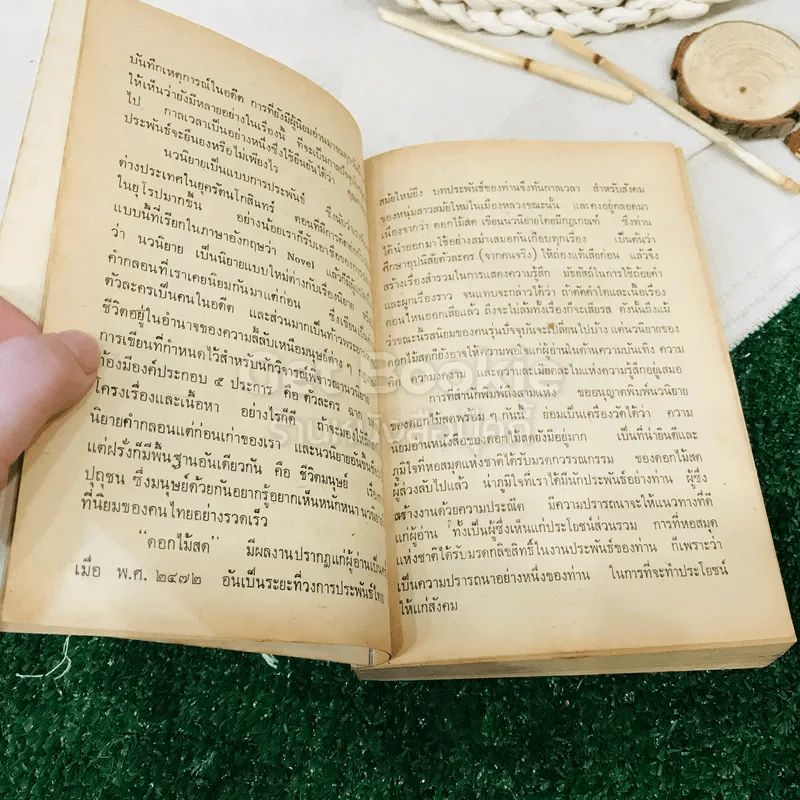 บันทึกเหตุการณ์ในอดีต การที่ยังมีผู้นิยมอ่านมาจน
ให้เห็นว่ายังมีหลายอย่างในเรื่องนี้ ที่จะเป็น
ไป กาลเวลาเป็นอย่างหนึ่งซึ่งใช้ยืนยันได้ว่า
ประพันธ์จะยืนยงหรือไม่เพียงไร
นวนิยายเป็นแบบการประพันธ์
ต่างประเทศในยุครัตนโกสินทร์ ตอนที่มีการติดต่อ
ในยุโรปมากขึ้น อย่างน้อยเราก็รับเอาชื่อของการ
แบบนี้ที่เรียกในภาษาอังกฤษว่า Novel แล้วก็มี
ว่า นวนิยาย เป็นนิยายแบบใหม่ต่างกับเรื่องนิยาย
คำกลอนที่เราเคยนิยมกันมาแต่ก่อน ซึ่งเขียน
ตัวละครเป็นคนในอดีต และส่วนมากเป็นท้าวพระยา
ชีวิตอยู่ในอำนาจของความลี้ลับเหนือมนุษย์ต่าง ๆ
การเขียนที่กำหนดไว้สำหรับนักวิจารณ์พิจารณานวนิยาย
ต้องมีองค์ประกอบ ๕ ประการ คือ ตัวละคร ฉาก
โครงเรื่องและเนื้อหา อย่างไรก็ดี ถ้าจะมองให้
นิยายคำกลอนแต่ก่อนเก่าของเรา และนวนิยายอัน
แต่ฝรั่งก็มีพื้นฐานอันเดียวกัน คือ ชีวิตมนุษย์
ปุถุชน ซึ่งมนุษย์ด้วยกันอยากรู้อยากเห็นหนักหนา
ที่นิยมของคนไทยอย่างรวดเร็ว
"ดอกไม้สด" มีผลงานปรากฏแก่ผู้อ่านเป็น
เมื่อ พ.ศ. ๒๔๗๒ อันเป็นระยะที่วงการประพันธ์ไทย
สมัยใหม่ยิ่ง บทประพันธ์ของท่านจึงทันกาลเวลา สำหรับสังคม
ของหนุ่มสาวสมัยใหม่ในเมืองหลวงขณะนั้น และคงอยู่ตลอดมา
เนื่องจากว่า ดอกไม้สด เขียนนวนิยายโดยมีกฎเกณฑ์ ซึ่งท่าน
ได้นำออกมาใช้อย่างสม่ำเสมอกันเกือบทุกเรื่อง เป็นต้นว่า
ศึกษาอุปนิสัยตัวละคร (จากคนจริง) ให้ถ่องแท้เสียก่อน แล้วจึง
สร้างเรื่องสำรวมในการแสดงความรู้สึก มัธยัสถ์ในการใช้ถ้อยคำ
และผูกเรื่องราว จนแทบจะกล่าวได้ว่า ถ้าตัดคำใดและเนื้อเรื่อง
ตอนไหนออกเสียแล้ว ถึงจะไม่ล้มทั้งเรื่องก็จะเสียรส ดังนั้นถึงแม้
ว่าขณะนี้รสนิยมของคนรุ่นปัจจุบันจะเปลี่ยนไปบ้าง แต่นวนิยายของ
ดอกไม้สดก็ยังอาจให้ความพอใจแก่ผู้อ่านในด้านความบันเทิง ความ
คิด ความงดงาม และความละเมียดละไมแห่งความรู้สึกอยู่เสมอ
การที่สำนักพิมพ์ถึงสามแห่ง ขออนุญาตพิมพ์นวนิยาย
ของดอกไม้สดพร้อม ๆ กันนี้ ย่อมเป็นเครื่องวัดได้ว่า ความ
นิยมอ่านหนังสือของดอกไม้สดยังมีอยู่มาก เป็นที่น่ายินดีและ
ภูมิใจที่หอสมุดแห่งชาติได้รับมรดกวรรณกรรม ของดอกไม้สด
ผู้ล่วงลับไปแล้ว น่าภูมิใจที่เราได้มีนักประพันธ์อย่างท่าน ผู้ซึ่ง
สร้างงานด้วยความประณีต มีความปรารถนาจะให้แนวทางที่ดี
แก่ผู้อ่าน ทั้งเป็นผู้ซึ่งเห็นแก่ประโยชน์ส่วนรวม การที่หอสมุด
แห่งชาติได้รับมรดกลิขสิทธิ์ในงานประพันธ์ของท่าน ก็เพราะว่า
เป็นความปรารถนาอย่างหนึ่งของท่าน ในการที่จะทำประโยชน์
ให้แก่สังคม
Get Bookie